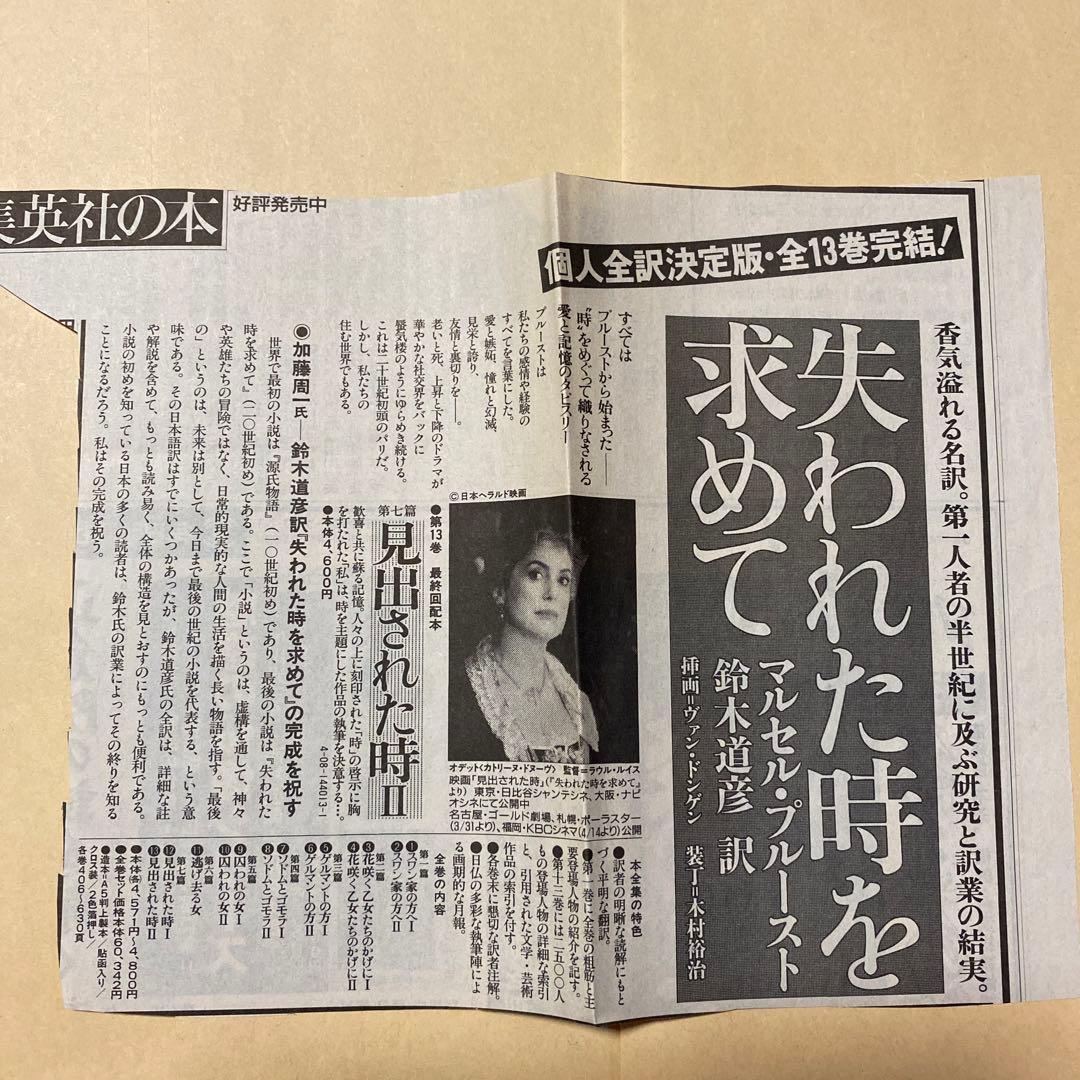 集英社の本
好評発売中
個人全訳決定版・全13巻完結!
香気溢れる名訳。第一人者の半世紀に及ぶ研究と訳業の結実。
失われた時を
求めて
マルセル・プルースト
鈴木道彦 訳
挿画=ヴァン・ドンゲン 装丁=木村裕治
すべては
プルーストから始まった――
“時”をめぐって織りなされる
愛と記憶のタピスリー
プルーストは
私たちの感情や経験の
すべてを言葉にした。
愛と嫉妬、憧れと幻滅、
見栄と誇り、
友情と裏切りを――。
老いと死、上昇と下降のドラマが
華やかな社交界をバックに
蜃気楼のようにゆらめき続ける。
これは二十世紀初頭のパリだ。
しかし、私たちの
住む世界でもある。
©日本ヘラルド映画
オデット〈カトリーヌ・ドヌーヴ〉 監督=ラウル・ルイス
映画「見出された時」(『失われた時を求めて』
より) 東京・日比谷シャンテシネ、大阪・ナビ
オシネにて公開中
名古屋・ゴールド劇場、札幌・ポーラスター
(3/31より)、福岡・KBCシネマ(4/14より)公開
●第13巻 最終回配本
第七篇
見出された時Ⅱ
歓喜と共に蘇る記憶。人々の上に刻印された「時」の啓示に胸
を打たれた「私」は、時を主題にした作品の執筆を決意する…。
●本体4,600円
4-08-144013-1
●加藤周一氏――鈴木道彦訳『失われた時を求めて』の完成を祝す
世界で最初の小説は『源氏物語』(一〇世紀初め)であり、最後の小説は『失われた
時を求めて』(二〇世紀初め)である。ここで「小説」というのは、虚構を通して、神々
や英雄たちの冒険ではなく、日常的現実的な人間の生活を描く長い物語を指す。「最後
の」というのは、未来は別として、今日まで最後の世紀の小説を代表する、という意
味である。その日本語訳はすでにいくつかあったが、鈴木道彦氏の全訳は、詳細な註
や解説を含めて、もっとも読み易く、全体の構造を見とおすのにもっとも便利である。
小説の初めを知っている日本の多くの読者は、鈴木氏の訳業によってその終りを知る
ことになるだろう。私はその完成を祝う。
本全集の特色
●訳者の明晰な読解にもと
づく平明な翻訳。
●第一巻に全巻の粗筋と主
要登場人物の紹介を記す。
●第十三巻には二五〇〇人
もの登場人物の詳細な索引
と、引用された文学・芸術
作品の索引を付す。
●各巻末に懇切な訳者注解。
●日仏の多彩な執筆陣によ
る画期的な月報。
全巻の内容
第一篇
①スワン家の方へⅠ
②スワン家の方へⅡ
第二篇
③花咲く乙女たちのかげにⅠ
④花咲く乙女たちのかげにⅡ
第三篇
⑤ゲルマントの方Ⅰ
⑥ゲルマントの方Ⅱ
第四篇
⑦ソドムとゴモラⅠ
⑧ソドムとゴモラⅡ
第五篇
⑨囚われの女Ⅰ
⑩囚われの女Ⅱ
第六篇
⑪逃げ去る女
第七篇
⑫見出された時Ⅰ
⑬見出された時Ⅱ
●本体(各)4,571円~4,800円
●全巻セット価格本体60,342円
●造本=A5判上製本/貼函入り/
クロス装/2色箔押し/
各巻406~630頁